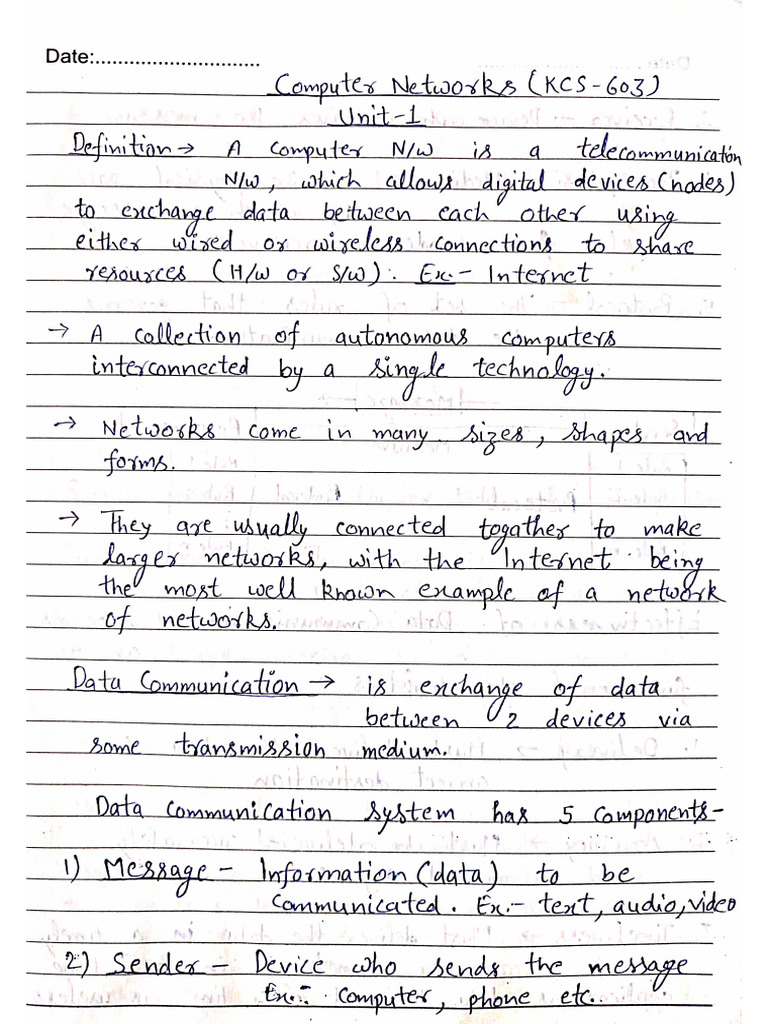 Date:.............................
Computer Networks (KCS-603)
Unit-1
Definition → A computer N/W is a telecommunication
N/W, which allows digital devices (nodes)
to exchange data between each other using
either wired or wireless connections to share
resources (H/W or S/W). Ex.- Internet
→ A collection of autonomous computers
interconnected by a single technology.
→ Networks come in many sizes, shapes and
forms.
→ They are usually connected togather to make
larger networks, with the Internet being
the most well known example of a network
of networks.
Data Communication → is exchange of data
between 2 devices via
some transmission medium.
Data Communication system has 5 components-
1) Message - Information (data) to be
communicated. Ex.- text, audio, video
2) Sender - Device who sends the message
Ex.- computer, phone etc..